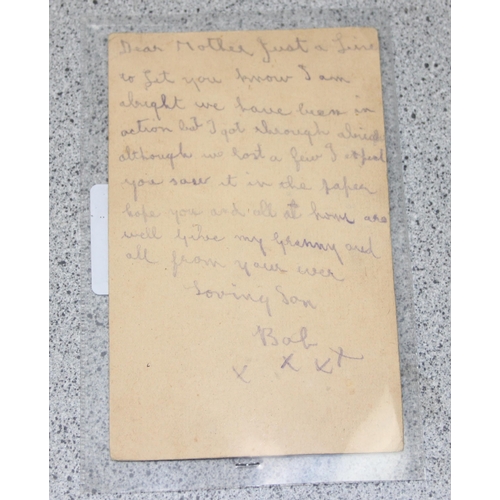 Dear Mother Just a Line
to Let you know I am
alright we have been in
action but I got through alright
although we lost a few I expect
you saw it in the paper
hope you and all at home are
well Give my Granny and
all from your ever
Loving Son
Bob
x x x x